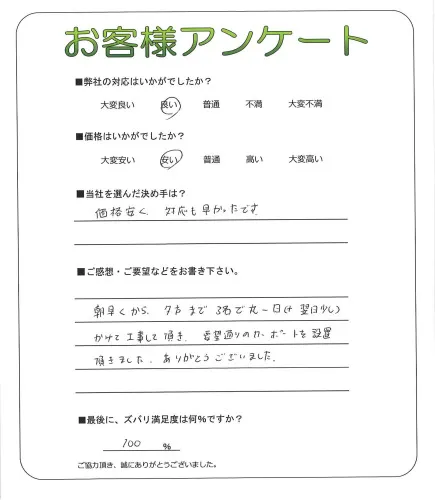 お客様アンケート
■弊社の対応はいかがでしたか？
大変良い 良い 普通 不満 大変不満
■価格はいかがでしたか？
大変安い 安い 普通 高い 大変高い
■当社を選んだ決め手は？
価格安く、対応も早かったです
■ご感想・ご要望などをお書き下さい。
朝早くから、夕方まで3名で丸一日(+翌日少し)
かけて工事して頂き、要望通りのカーポートを設置
頂きました。ありがとうございました。
■最後に、ズバリ満足度は何%ですか？
100 %
ご協力頂き、誠にありがとうございました。